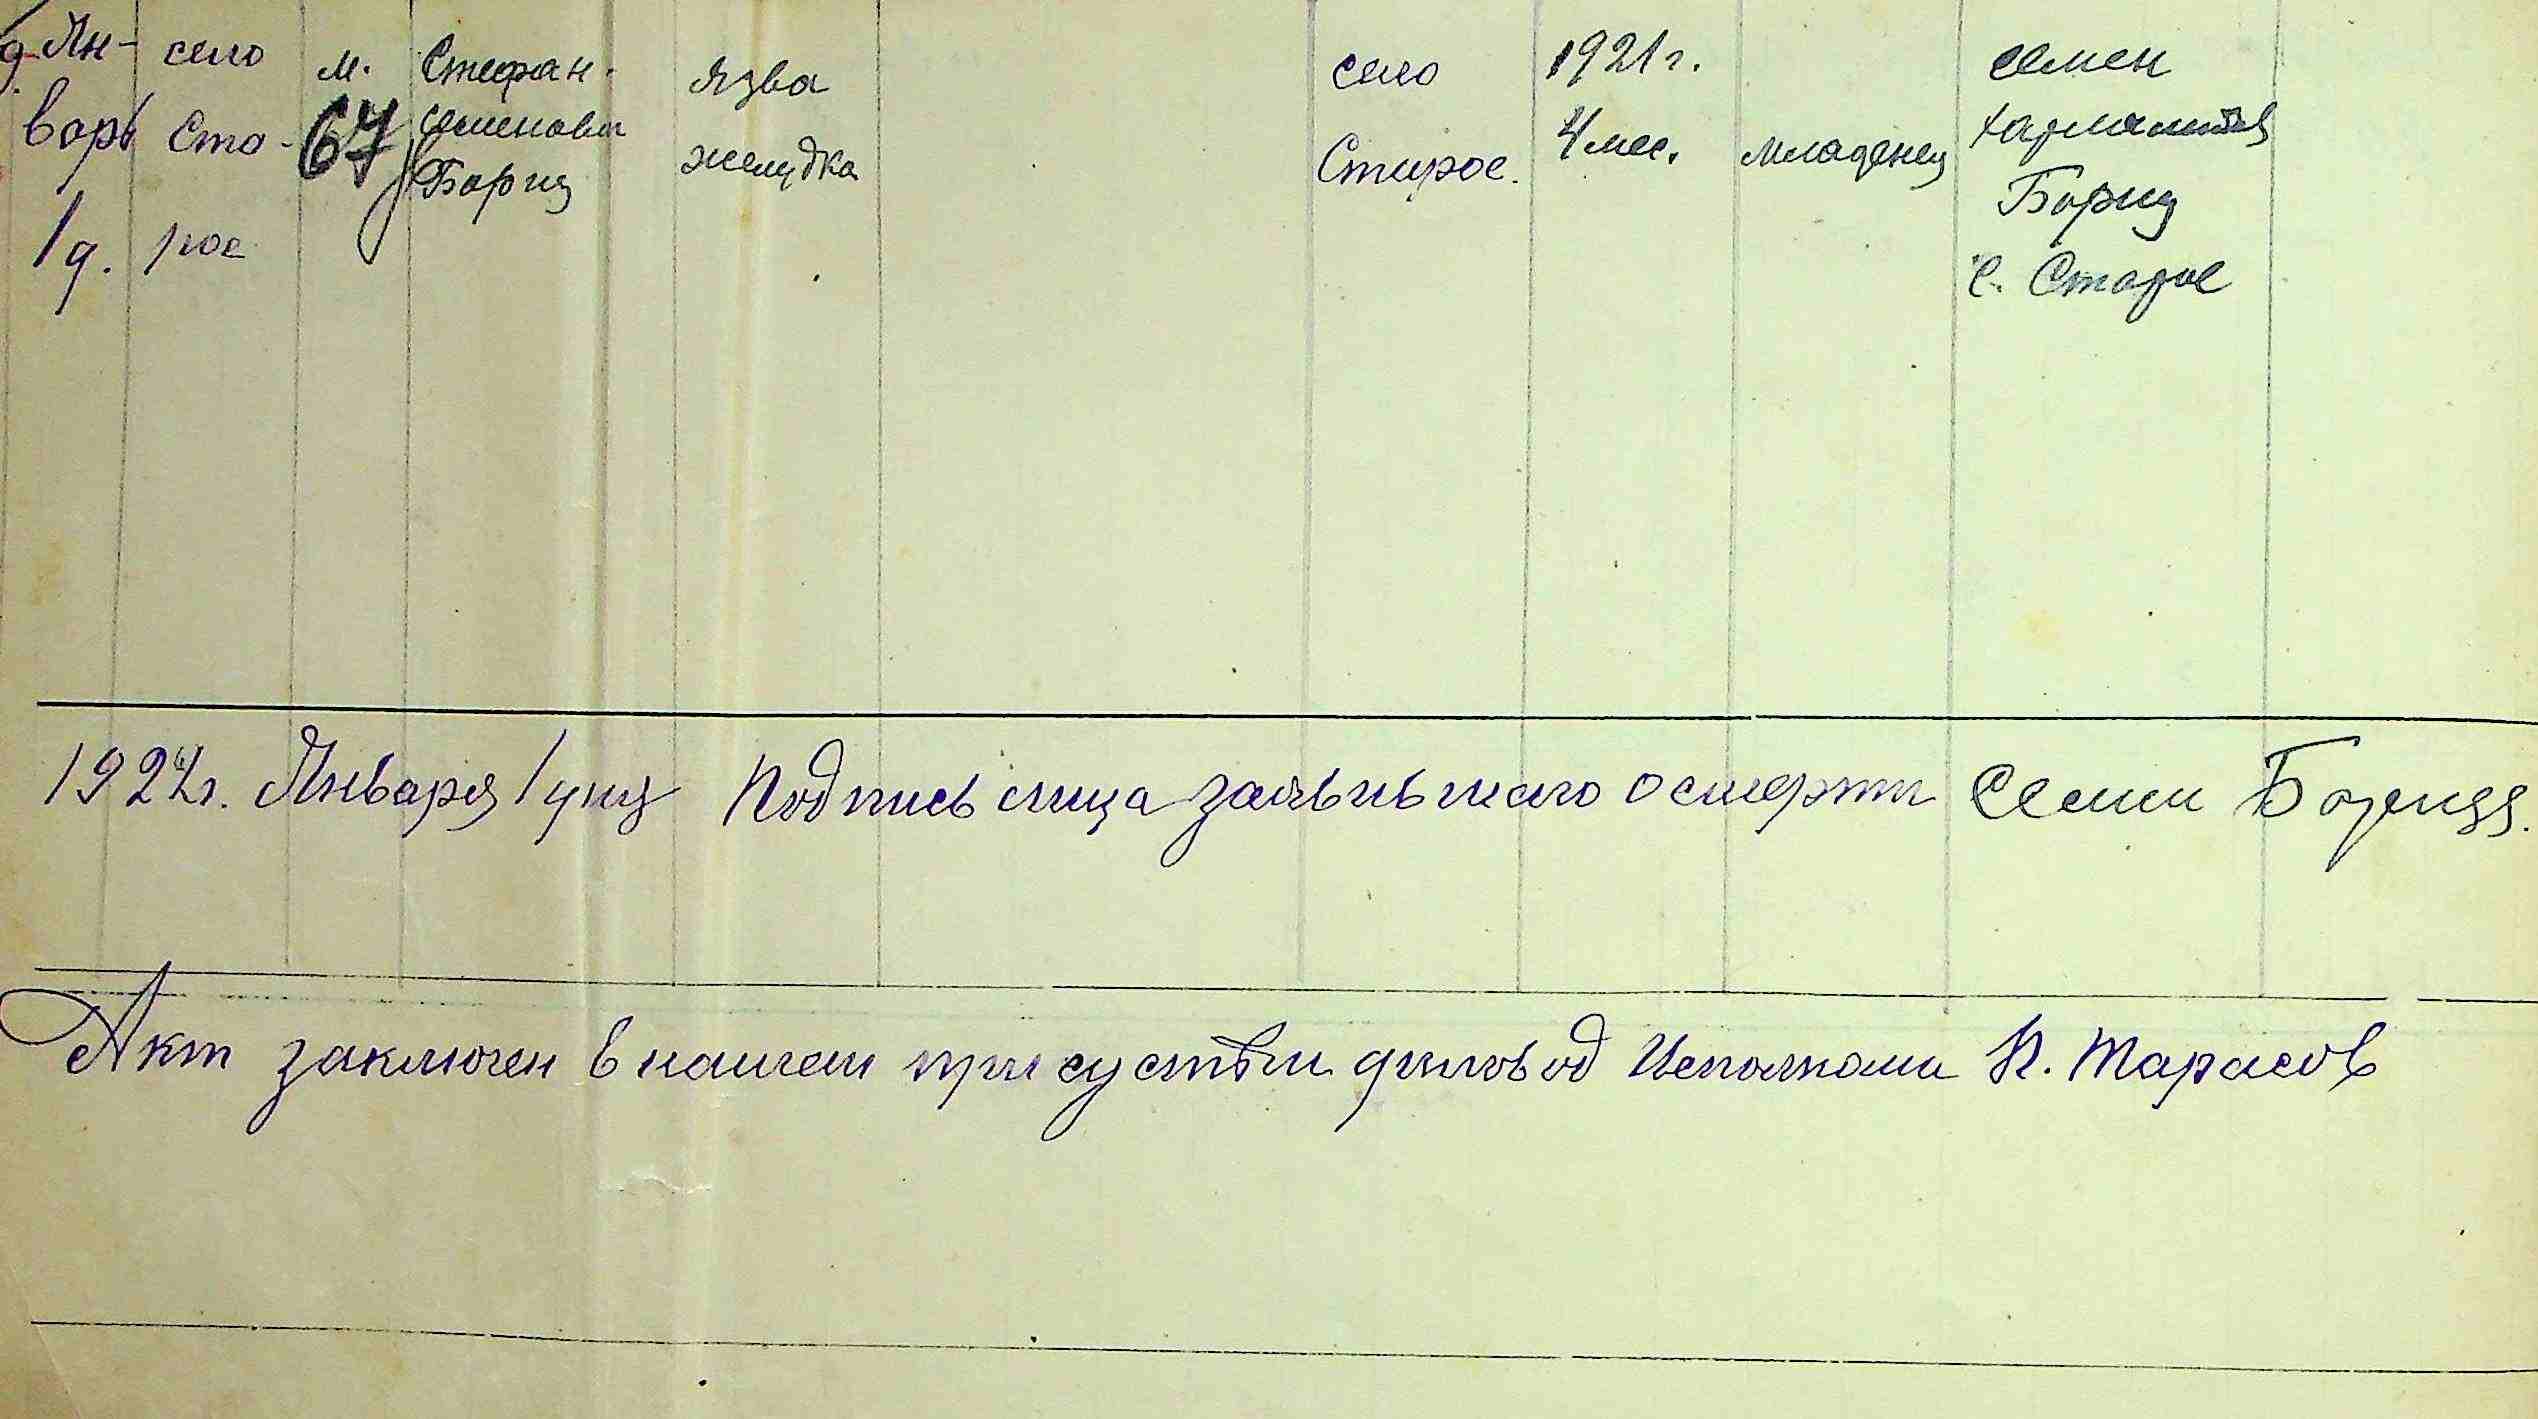 Ян-
варь
1 д.
село
Ста-
рое
м.
67
Стефан
Семенович
Бориц
язва
желудка
село
Старое.
1921 г.
4 мес.
младенец
Семен
Бориц
с. Старое
1922 г. Января 1 дня Подпись лица заявившаго о смерти Семен
Акт заключен в нашем присуствии деловод Исполкома К. Тарасов